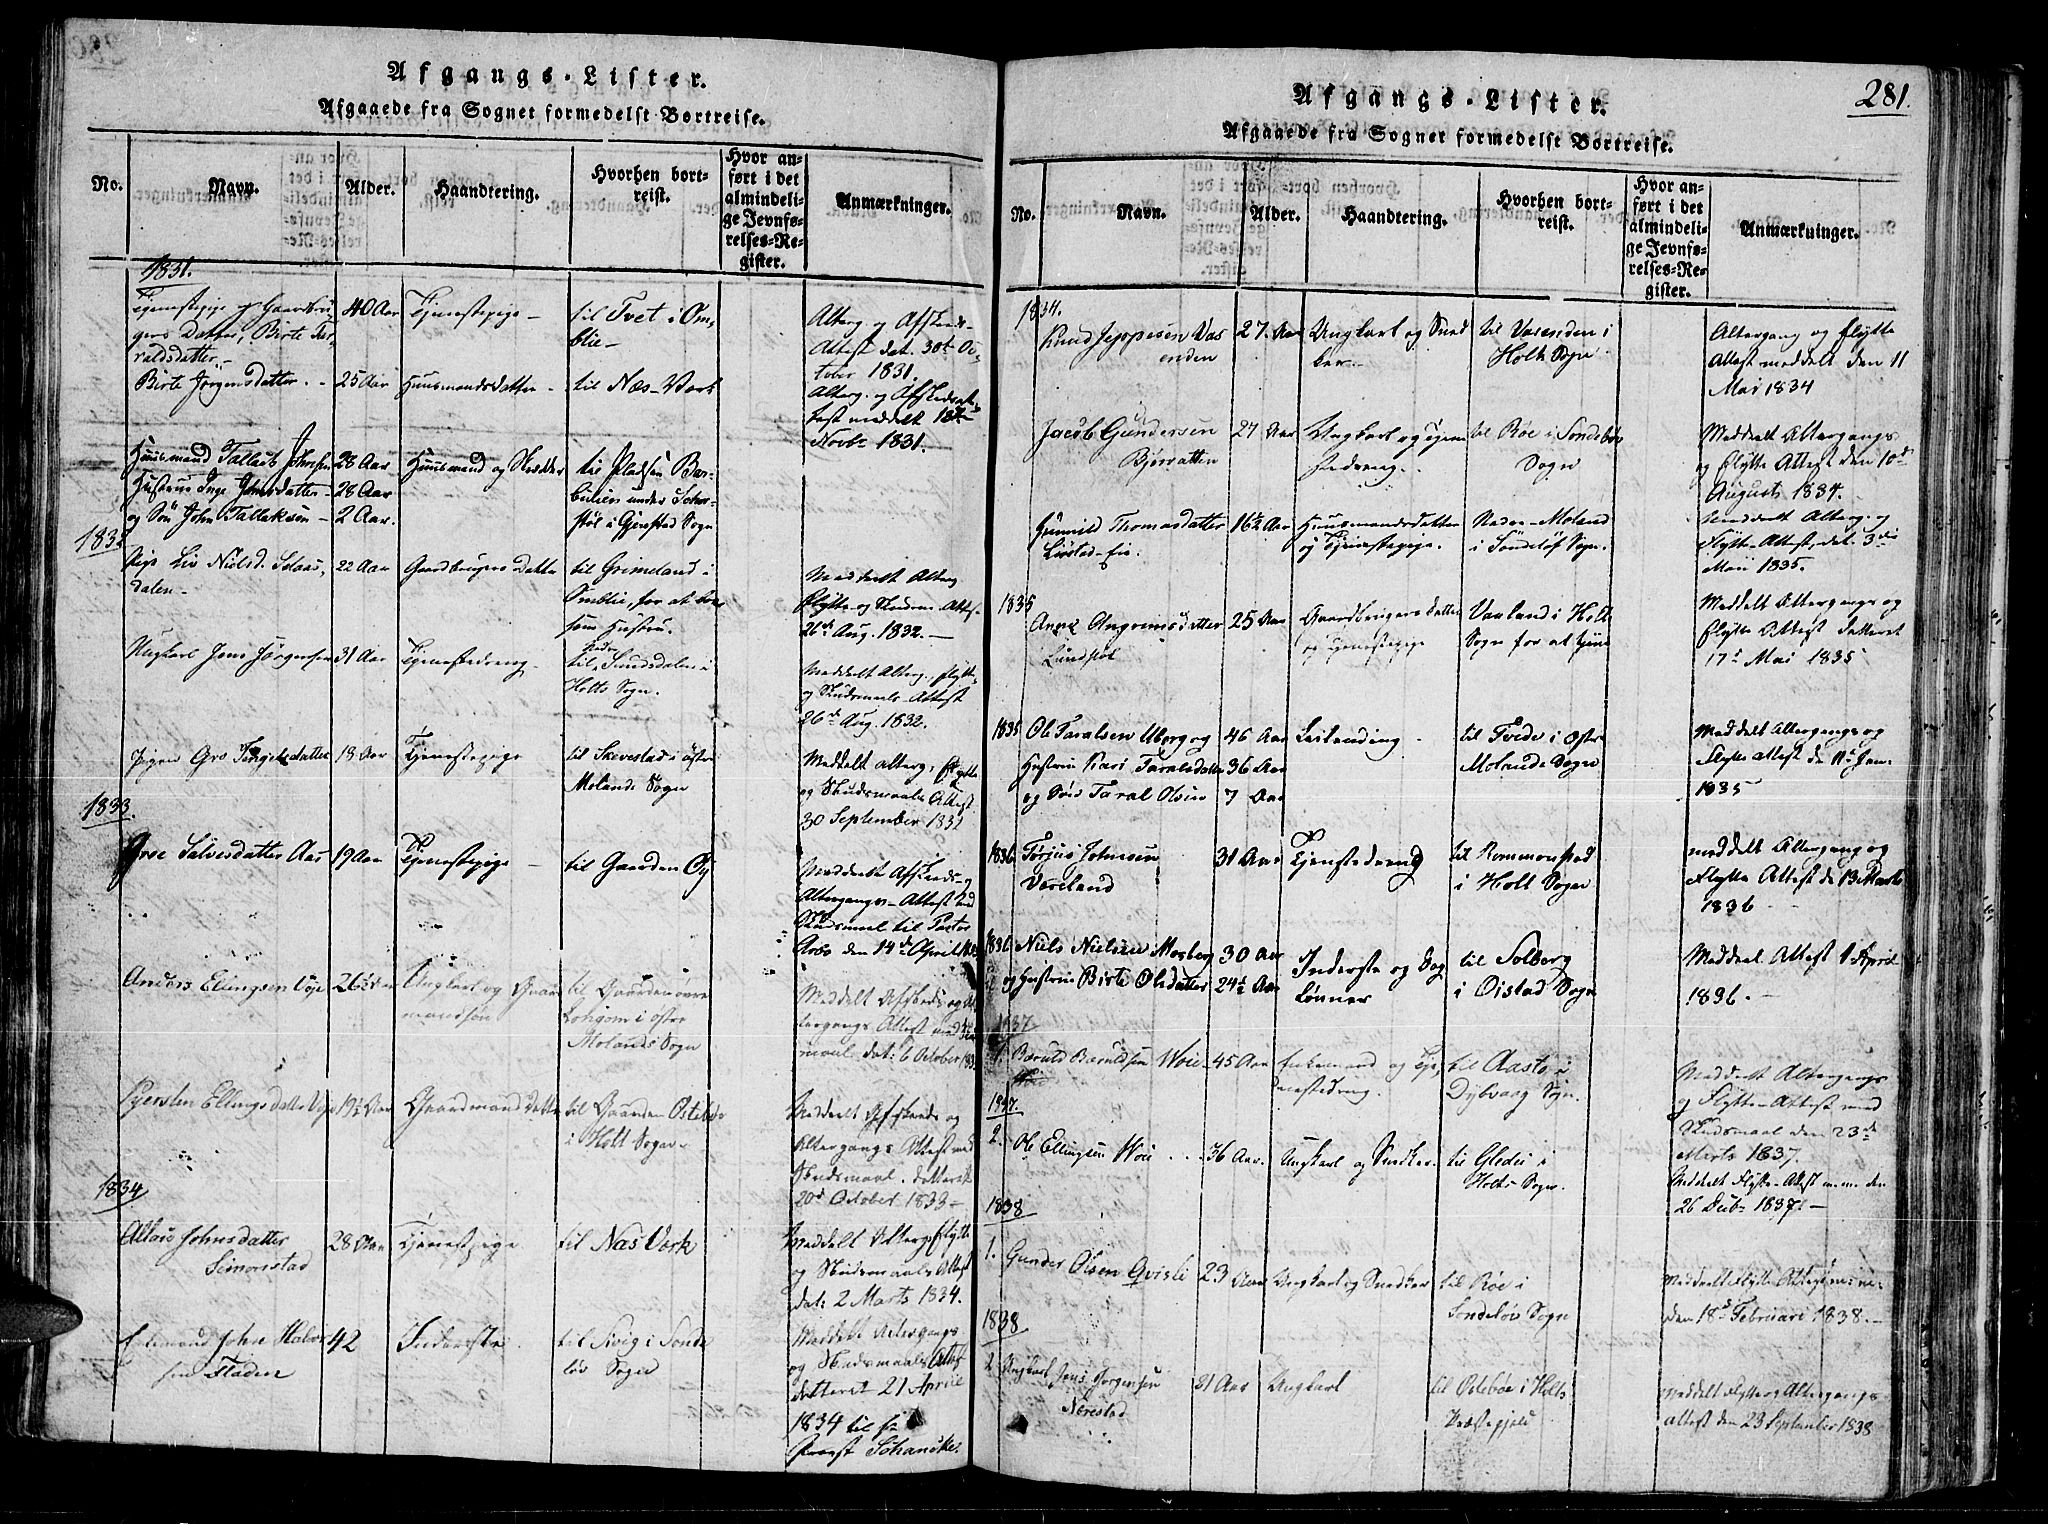 Afgangs-Lister.
Afgaaede fra Sognet formedelst Bortreise.
No.
Navn.
Alder.
Haandtering.
Hvorhen bort-
reist.
Hvor an-
ført i det
almindeli-
ge Jevnfø-
relses-Re-
gister.
Anmærkninger.
1831.
Tjenestepige og Gaardbru-
gers Datter, Birte Ter-
raldsdatter
40 Aar
Tjenestepige
til Tvet i Om-
blie
Alterg. og Afskeds-
Attest dat. 30te Oc-
tober 1831.
Birte Jörgensdatter
25 Aar
Huusmandsdatter
til Næs-Verk
Alterg. og Afskedsat-
test meddelt 18de
Novbr 1831.
Huusmand Tallak Johnsen
28 Aar
Huusmand og Skrædder
til Pladsen Bar-
Hustrue Inge Johnsdatter
28 Aar
og Sön John Tallaksen
2 Aar.
under
i Gjerstad Sogn
1832
Pige Liv Nielsd. Selaas-
dalen
22 Aar
Gaardbrugers Datter
til Grimeland i
Omblie, for at
som Hustru.
Meddeelt Alterg.
Flytte og Skudsm. Attest
26de Aug. 1832.
Ungkarl Jens Jörgensen
31 Aar
Tjenestedreng
til Sundsdalen i
Holts Sogn.
Meddelt Alterg., Flytte-
og Skudsmaals-Attest
26de Aug. 1832.
Pigen Gro Tergelsdatter
18 Aar
Tjenestepige
til Skevestad i östre
Molands Sogn
Meddelt Alterg. Flytte
og Skudsmaals Attest
30 September 1832
1833.
Groe Salvesdatter Aas
19 Aar
Tjenestepige
til Gaarden Öy
Meddeelt Afskeds- og
Altergangs-Attest med
Skudsmaal til Pastor
Arbo den 14de April 1833
Anders Ellingsen Voje
26½ Aar
Ungkarl og Gaard-
mandsön
til Gaarden övre
Longom i östre
Molands Sogn
Meddelt Afskeds og Al-
tergangs Attest med Skuds-
maal, dat: 6 October 1833
Kjersten Ellingsdatter Voje
19½ Aar
Gaardmands Datter
til Gaarden Östebö
i Holt Sogn
Meddelt Afskeds og
Altergangs Attest med
Skudsmaal, datteret
20de October 1833
1834
Aslaug Johnsdatter
Simonstad
28 Aar
Tjenestepige
til Næs Verk
Meddelt Alterg. Flytte
og Skudsmaals Attest
dat: 2 Marts 1834.
Enkemand John Halvor
sen Fladen
42
Inderste
til Sivig i Sønde
løv Sogn
Meddelt Altergangs
og Skudsmaals Attest
datteret 21 April
1834 til Hr
Provst Schanche.
281.
Afgangs-Lister.
Afgaaede fra Sognet formedelst Bortreise.
No.
Navn.
Alder.
Haandtering.
Hvorhen bort-
reist.
Hvor an-
ført i det
almindeli-
ge Jevnfø-
relses-Re-
gister.
Anmærkninger.
1834.
Knud Jeppesen Vas
enden
27 Aar
Ungkarl og Sned
ker
til Vasenden i
Holt Sogn
Altergang og Flytte
Attest meddelt den 11
Mai 1834
Jacob Gundersen
Bjørvatten
27 Aar
Ungkarl og tjene
stedreng
til Röe i Sondeløv
Sogn
Meddelt Altergangs
og Flytte Attest den 10de
Augusts 1834.
Gunnild Thomasdatter
Livstad-Eie
16½ Aar
Huusmandsdatter
og Tjenestepige
Nedre-Moland
i Söndelöf Sogn.
Meddelt Alterg. og
Flytte-Attest, dat. 3de
Mai 1835.
1835
Anne Angrimsdatter
Lundstöl
25 Aar
Gaardbrugersdatter
og tjenestepige
Vaaland i Holt
Sogn for at tjene
Meddelt Altergangs og
Flytte Attest datteret
17de Mai 1835
1835
Ole Taralsen Uberg og
46 Aar
Leilending
til Tvede i Ostre
Hustrue Kari Taralsdatter
36 Aar
Molands Sogn
og Sön Taral Olsen
7 Aar
Meddelt Altergangs og
Flytte Attest d. 11te Jan.
1835
1836
Tørjus Johnsen
Væreland
31 Aar
Tjenestedreng
til Rommonstad
i Holt Sogn
meddelt Altergang og
Flytte Attest d. 13 Marts
1836
1836
Niels Nielsen Mosberg
30 Aar
og Hustrue Birte Olsdatter
24½ Aar
Inderste og Dag
Lønner
til Solberg
i Oistad Sogn
Meddeelt Attest 1 April
1836.
1837
1.
Baruld Baruldsen Woie
45 Aar
Enkemand og Tje-
nestedreng.
til Aasto i
Dybvaag Sogn.
Meddeelt Altergangs
og Flytte-Attest med
Skudsmaal den 23de
Marts 1837.
1837.
2.
Ole Ellingsen Woie
36 Aar.
Ungkarl og Snedker.
til Gledie i
Holts Sogn.
Meddeelt Flytte-Attest m.m. den
26 Decbr 1837.
1838
1.
Gunder Olsen Qvisli
23 Aar
Ungkarl og Snedker
til Röe i
Sondeløv Sogn
Meddeelt Flytte-Attest m.m.
den 18de Februari 1838.
1838
2
Ungkarl Jens Jorgensen
Nærestad
31 Aar
Ungkarl
til Ostebøe i Holts
Præstegjeld
Meddelt Flytte og Altergangs
attest den 23 September 1838